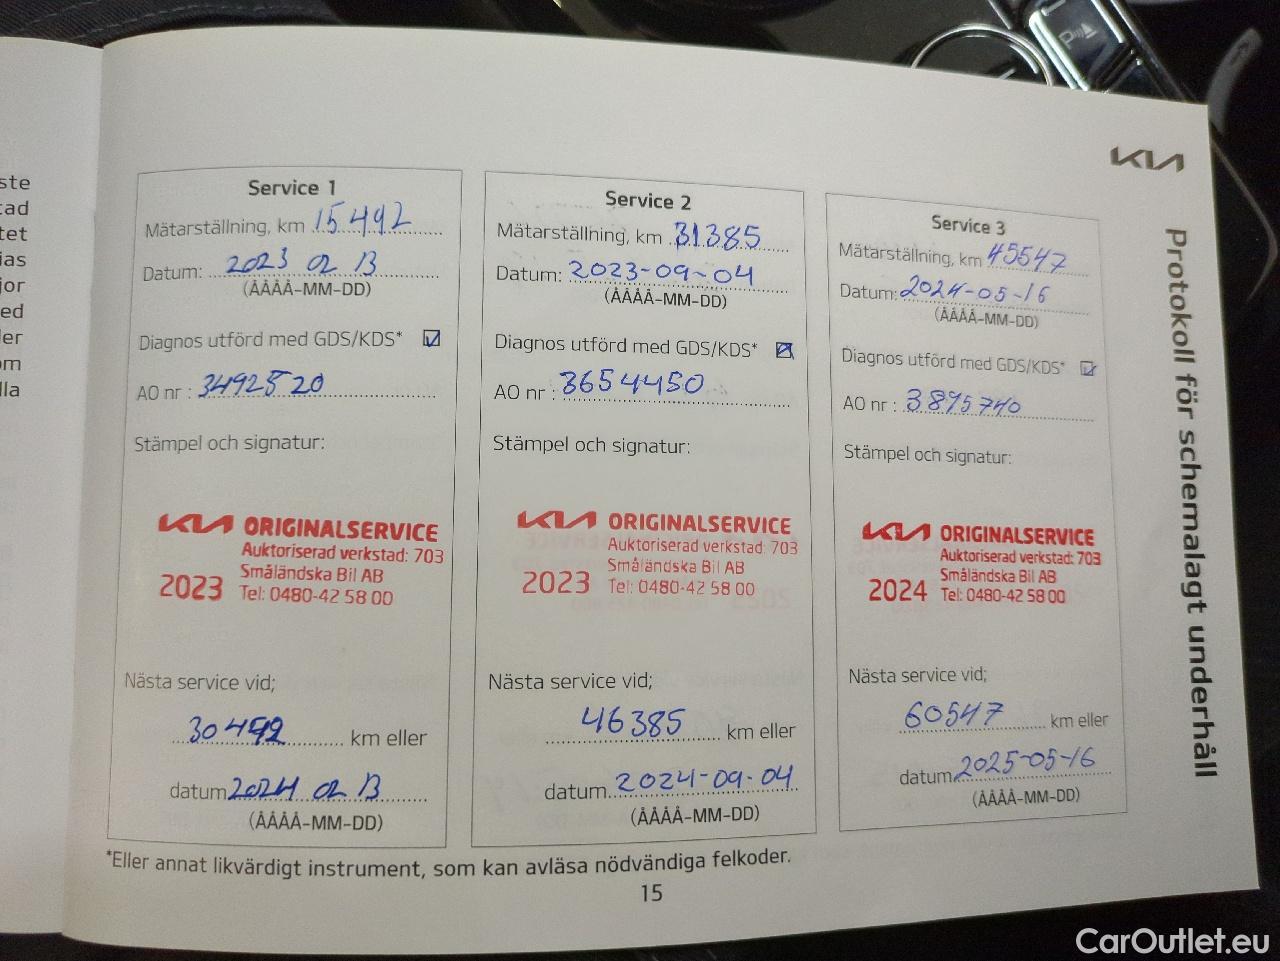 ste
tad
tet
ias
jor
ed
ler
om
lla
KIA
Protokoll för schemalagt underhåll
Service 1
Mätarställning, km 15492
Datum: 2023 02 13
(ÅÅÅÅ-MM-DD)
Diagnos utförd med GDS/KDS*
AO nr : 3492520
Stämpel och signatur:
KIA ORIGINALSERVICE
Auktoriserad verkstad: 703
Småländska Bil AB
2023 Tel: 0480-42 58 00
Nästa service vid;
30492 km eller
datum 2024 02 13
(ÅÅÅÅ-MM-DD)
Service 2
Mätarställning, km 31385
Datum: 2023-09-04
(ÅÅÅÅ-MM-DD)
Diagnos utförd med GDS/KDS*
AO nr : 3654450
Stämpel och signatur:
KIA ORIGINALSERVICE
Auktoriserad verkstad: 703
Småländska Bil AB
2023 Tel: 0480-42 58 00
Nästa service vid;
46385 km eller
datum 2024-09-04
(ÅÅÅÅ-MM-DD)
Service 3
Mätarställning, km 45547
Datum: 2024-05-16
(ÅÅÅÅ-MM-DD)
Diagnos utförd med GDS/KDS*
AO nr : 3895740
Stämpel och signatur:
KIA ORIGINALSERVICE
Auktoriserad verkstad: 703
Småländska Bil AB
2024 Tel: 0480-42 58 00
Nästa service vid;
60547 km eller
datum 2025-05-16
(ÅÅÅÅ-MM-DD)
*Eller annat likvärdigt instrument, som kan avläsa nödvändiga felkoder.
15
CarOutlet.eu